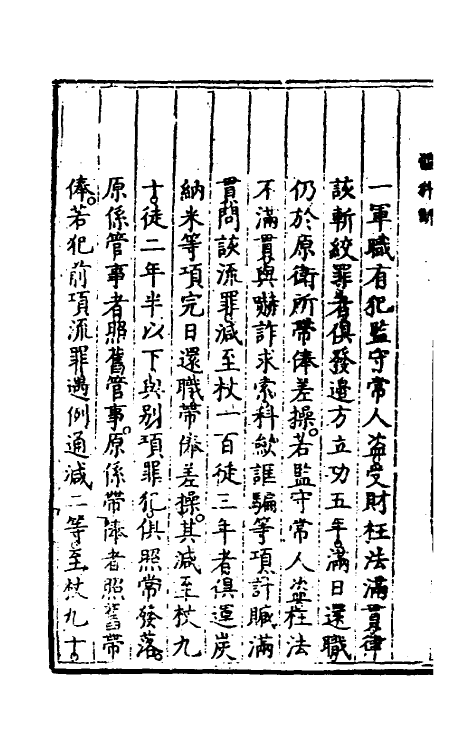 一軍職有犯監守常人盗受財枉法滿貫律
該斬絞罪者俱發邊方立功五年滿日還職
仍於原衛所帶俸差操。若監守常人盗枉法
不滿貫與嚇詐求索科歛誆騙等項計贓滿
貫問該流罪減至杖一百徒三年者俱運炭
納米等項完日還職帶俸差操。其減至杖九
十。徒二年半以下與别項罪犯俱照常發落。
原係管事者照舊管事。原係帶俸者照舊帶
俸。若犯前項流罪遇例通減二等。至杖九十。